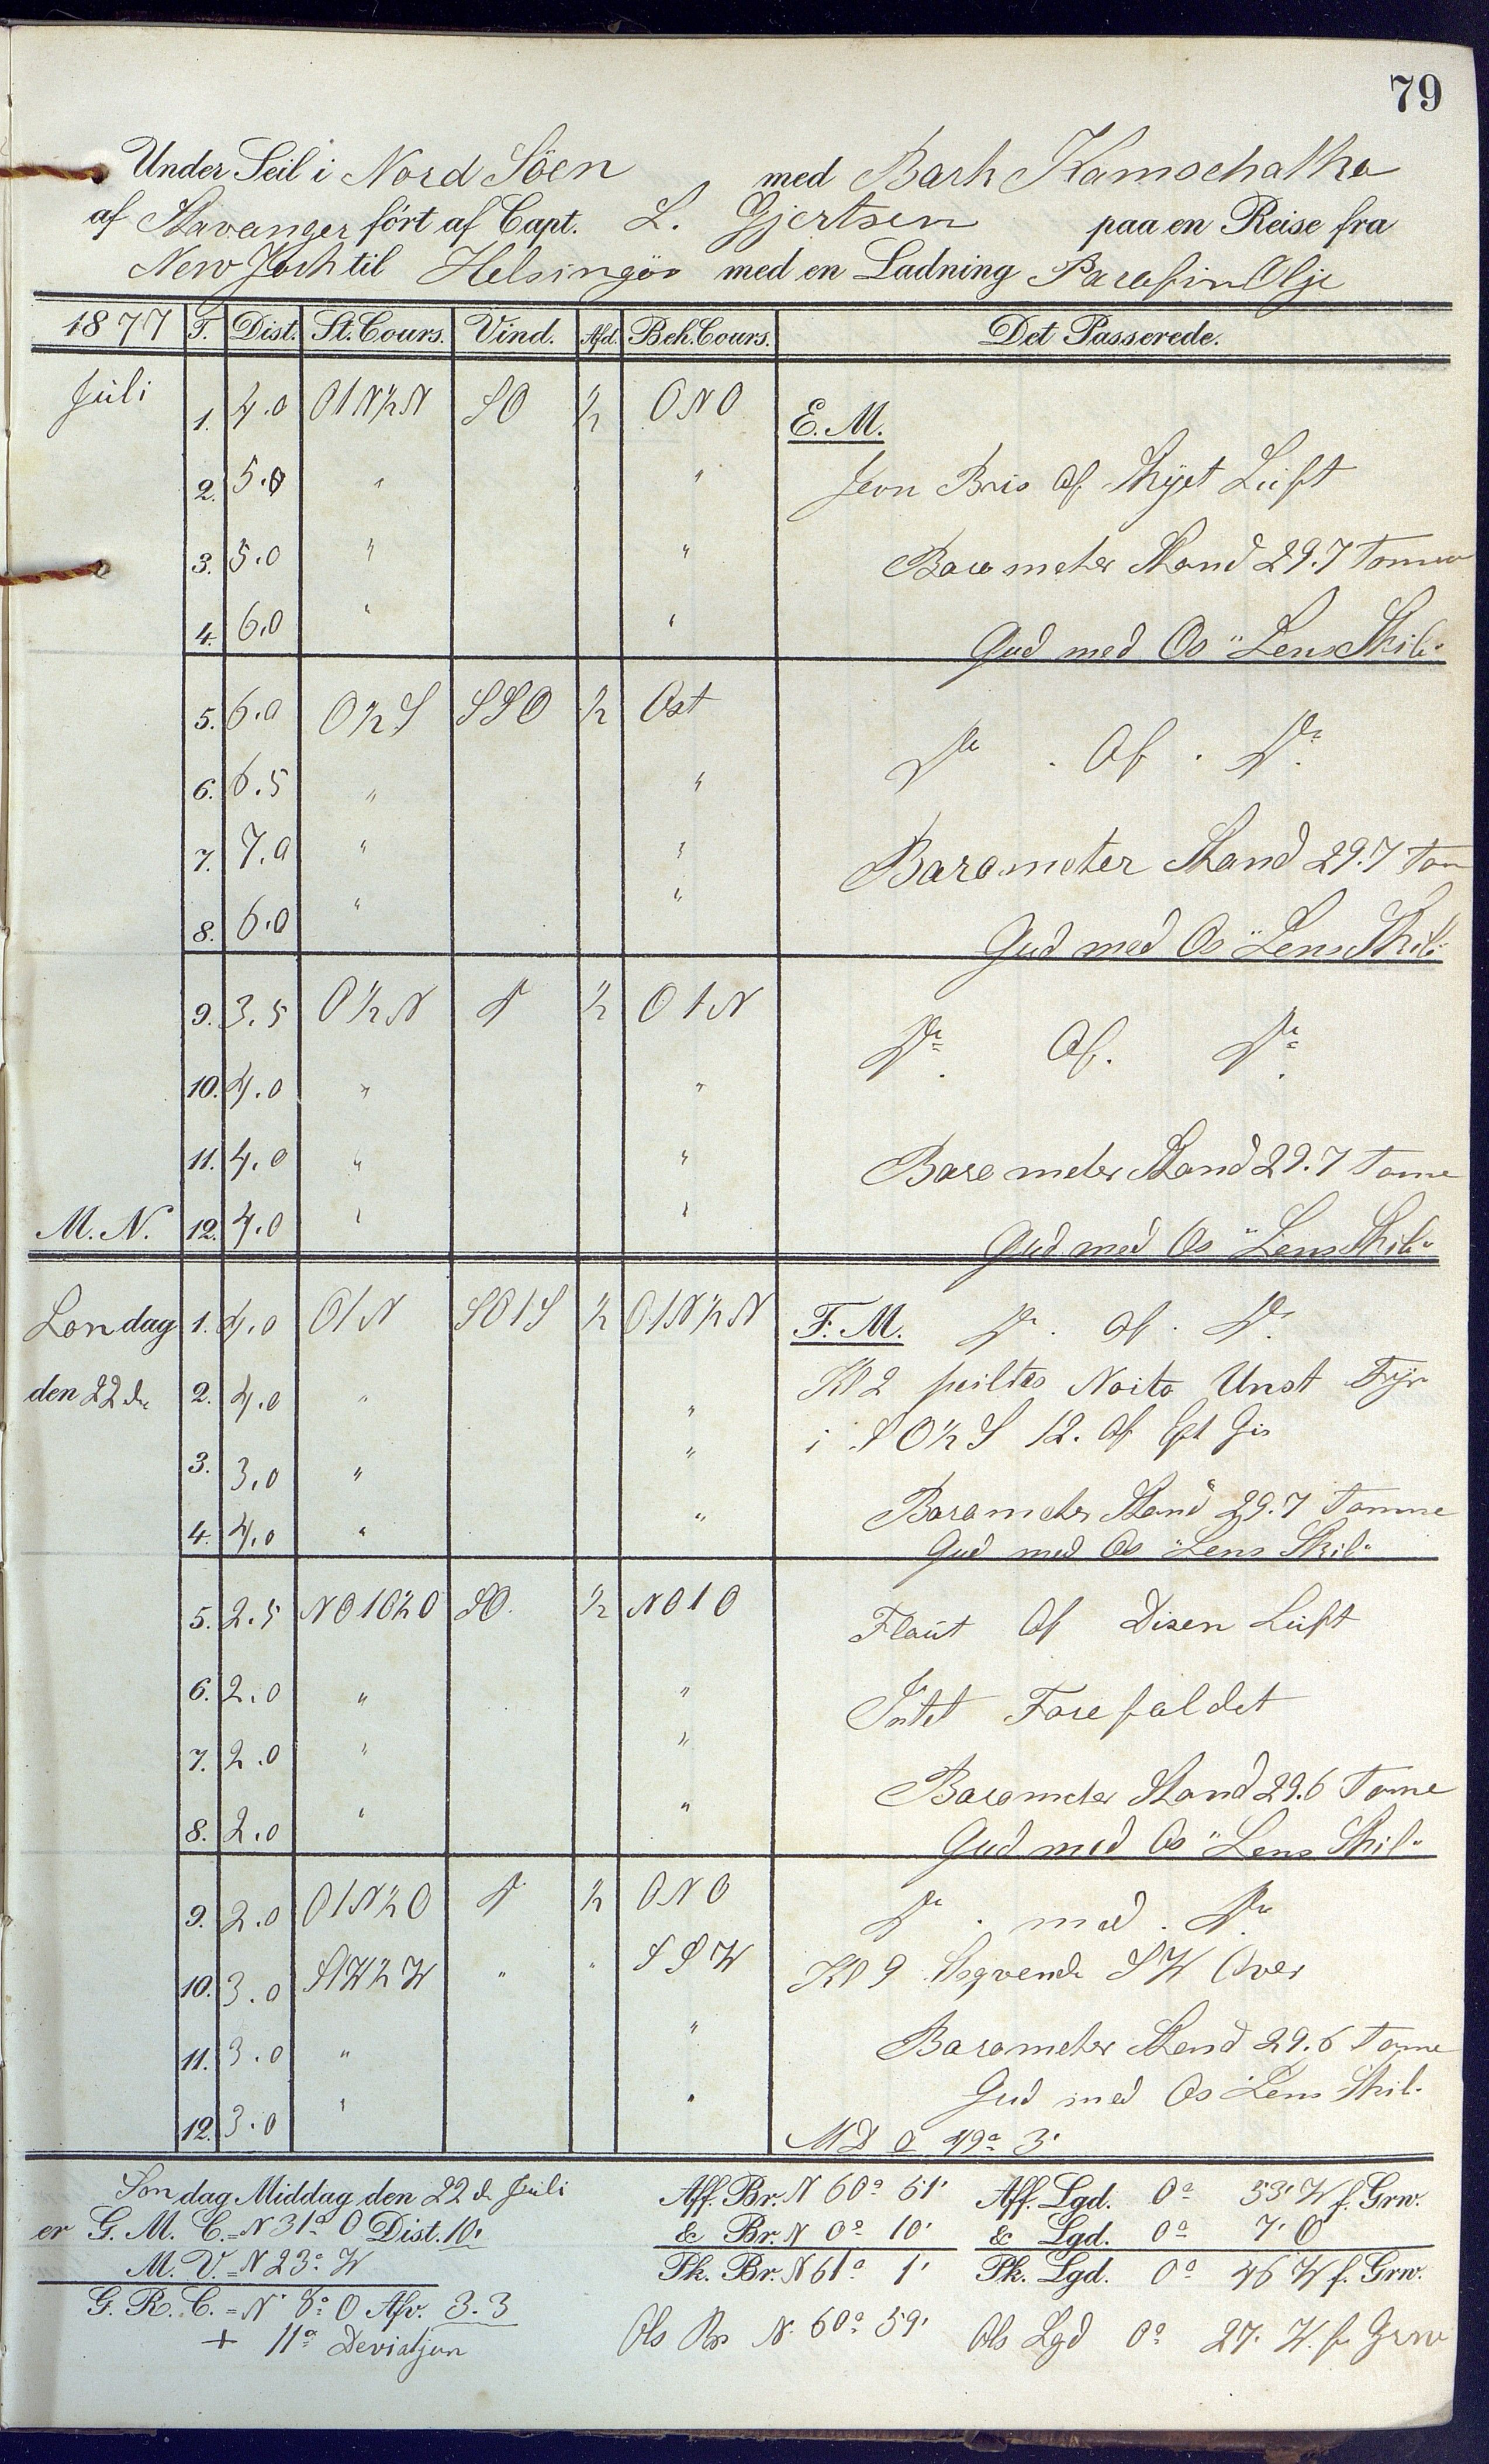 79
Under Seil i Nord Söen med Bark Kamschatka
af Stavanger fört af Capt. L. Gjertsen paa en Reise fra
New York til Helsingör med en Ladning Parafin Olje
1877 T. Dist. St. Cours. Vind. Afd. Beh. Cours. Det Passerede.
Juli 1. 4.0 O1N½N SO ½ ONO E. M.
2. 5.0 " " Jevn Bris Af Skyet Luft
3. 5.0 " " Barometer Stand 29.7 Tomme
4. 6.0 " " Gud med Os "Lens Skib"
5. 6.0 O½S SSO ½ Ost Do . Af . Do
6. 6.5 " "
7. 7.0 " " Barometer Stand 29.7 Tom
8. 6.0 " " Gud med Os "Lens Skib"
9. 3.5 O½N Do ½ O1N Do Af. Do
10. 4.0 " "
11. 4.0 " " Barometer Stand 29.7 Tome
M. N. 12. 4.0 " " Gud med Os "Lens Skib"
Søndag 1. 4.0 O1N SO1S ½ O1N½N F. M. Do . af . Do
den 22de 2. 4.0 " " Kl 2 peiltes Unst Fyr
3. 3.0 " " i SO½S 12. Af Gis
4. 4.0 " " Barometer Stand 29.7 Tomme
Gud med Os "Lens Skib"
5. 2.5 NO1O½O SO. ½ NO1O Flaut Af Disen Luft
6. 2.0 " " Intet Forefaldet
7. 2.0 " "
Barometer Stand 29.6 Tome
8. 2.0 " " Gud med Os "Lens Skib"
9. 2.0 O1N½O Do ½ ONO Do . med . Do
10. 3.0 SW½W " " SSW Kl 9 SW Over
11. 3.0 " " Barometer Stand 29.6 Tome
Gud med Os "Lens Skib"
12. 3.0 " " MD a 49° 3'
Søndag Middag den 22 d Juli Aff. Br. N 60° 51' Aff. Lgd. 0° 53' W f. Grw.
er G. M. C. = N 31° O Dist. 10' & Br. N 0° 10' & Lgd. 0° 7' O
M. V. = N 23° W Pk. Br. N 61° 1' Pk. Lgd. 0° 46' W f. Grw.
G. R. C. = N 8° O Afv. 3.3
Obs Br N. 60° 59' Obs Lgd 0° 27' W. f. Grw
+ 11° Deviatjon